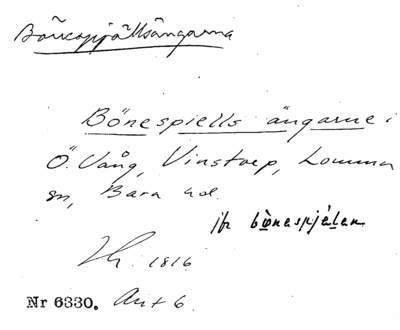 Bönespjällsängarna
Bönespiells ängarne i
Ö. Vång, Vinstorp, Lomma
sn, Bara hd.
jfr bönespjälen
1816
Nr 6330. Ant 6.